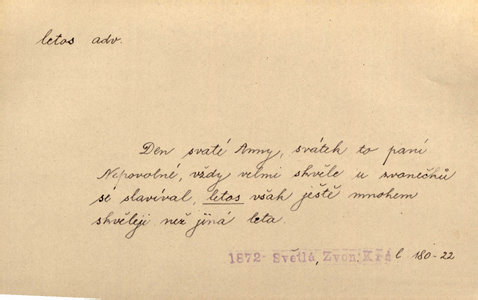 letos adv.
Den svaté Anny, svátek to paní
Nepovolné, vždy velmi skvěle u svaničků
se slavíval, letos však ještě mnohem
skvěleji než jiná leta.
1872 Světlá, Zvon. Král 180-22